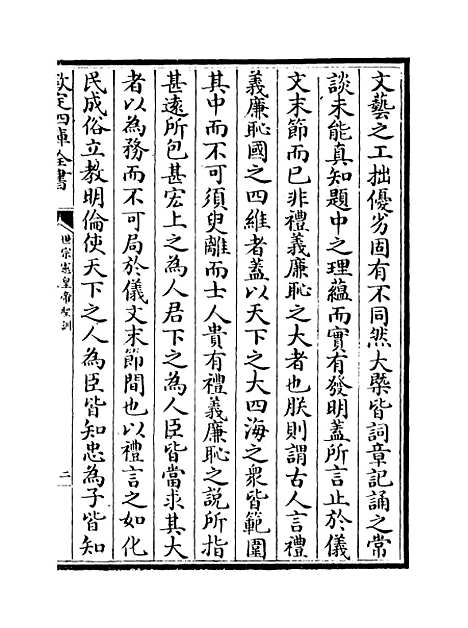 文藝之工拙優劣固有不同然大槩皆詞章記誦之常
談未能真知題中之理蘊而實有發明蓋所言止於儀
文末節而已非禮義廉恥之大者也朕則謂古人言禮
義廉恥國之四維者蓋以天下之大四海之衆皆範圍
其中而不可須臾離而士人貴有禮義廉恥之說所指
甚遠所包甚宏上之為人君下之為人臣皆當求其大
者以為務而不可局於儀文末節間也以禮言之如化
民成俗立教明倫使天下之人為臣皆知忠為子皆知
欽定四庫全書
世宗憲皇帝聖訓
二